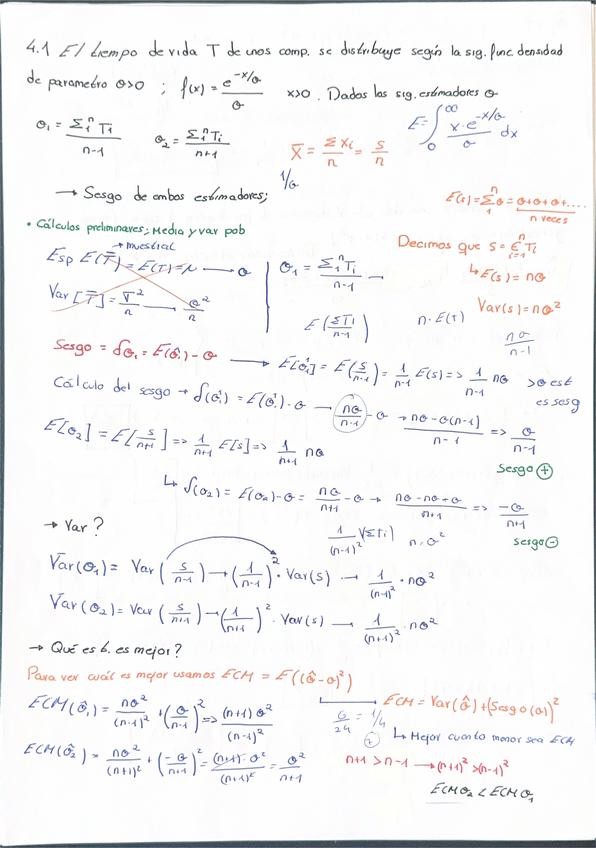 4.1 El tiempo de vida T de unos comp. se distribuye según la sig. func. densidad
de parametro θ>0 ; f(x) = e^(-x/θ)/θ   x>0. Dados los sig. estimadores θ
θ₁ = Σ₁ⁿ Ti/(n-1)   θ₂ = Σ₁ⁿ Ti/(n+1)   X̄ = Σxi/n = s/n   E = ∫₀^∞ x·e^(-x/θ)/θ dx
1/θ
→ Sesgo de ambos estimadores;
E(s) = Σ₁ⁿ θ = θ+θ+θ+....
n veces
• Cálculos preliminares; Media y var pob
→ muestral
Decimos que S = Σᵢ₌₁ⁿ Ti
Esp E(T̄) = E(T) = μ → θ
θ₁ = Σ₁ⁿ Ti/(n-1)
↳ E(s) = nθ
Var[T̄] = σ²/n → θ²/n
E(ΣTi/(n-1))   n·E(T)
Var(s) = nθ²
nθ/(n-1)
Sesgo = δθ₁ = E(θ̂₁) - θ → E[θ̂₁] = E(s/(n-1)) = 1/(n-1) E(s) => 1/(n-1) nθ   >θ est
es sesg
Cálculo del sesgo → δ(θ̂₁) = E(θ̂₁) - θ → nθ/(n-1) - θ → (nθ-θ(n-1))/(n-1) => θ/(n-1)
E[θ₂] = E[s/(n+1)] => 1/(n+1) E[s] => 1/(n+1) nθ
Sesgo ⊕
↳ δ(θ₂) = E(θ₂) - θ = nθ/(n+1) - θ → (nθ-nθ+θ)/(n+1) => -θ/(n+1)
sesgo ⊖
→ Var?
1/(n-1)² V(ΣTi)   n·θ²
Var(θ₁) = Var(s/(n-1)) → (1/(n-1))² · Var(s) → 1/(n-1)² · nθ²
Var(θ₂) = Var(s/(n+1)) → (1/(n+1))² · Var(s) → 1/(n+1)² · nθ²
→ Qué es b. es mejor?
Para ver cuál es mejor usamos ECM = E((θ̂-θ)²)
↳ ECM = Var(θ̂) + (Sesgo(θ))²
ECM(θ̂₁) = nθ²/(n-1)² + (θ/(n-1))² => (n+1)θ²/(n-1)²
6/24 = 1/4
⊕ ↳ Mejor cuanto menor sea ECM
ECM(θ̂₂) = nθ²/(n+1)² + (-θ/(n+1))² = (n+1)·θ²/(n+1)² = θ²/(n+1)
n+1 > n-1 → (n+1)² > (n-1)²
ECMθ₂ < ECMθ₁